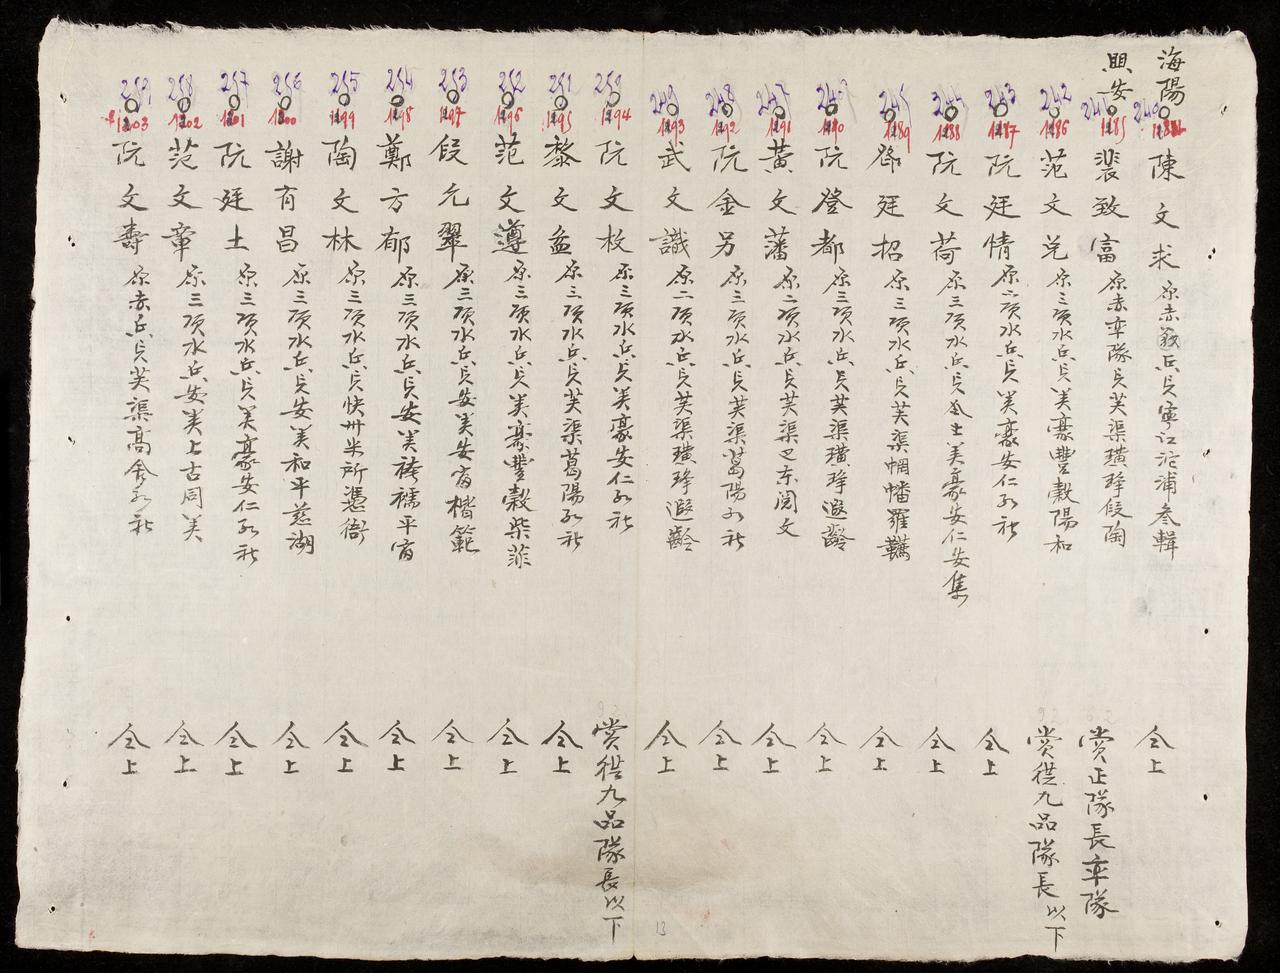 海陽
興安
240
1184
陳文求 原赤義兵員寧江沱浦叅輯 仝上
241
1185
裴致富 原赤率隊員芙渠璜琤叚陶 賞正隊長率隊
242
1186
范文兌 原三項水兵員美豪豐穀陽和 賞從九品隊長以下
243
1187
阮廷情 原二項水兵員美豪安仁 社 仝上
244
1188
阮文荷 原三項水兵員金土美豪安仁安集 仝上
245
1189
鄧廷招 原三項水兵員芙渠惆幡羅 仝上
246
1190
阮登都 原三項水兵員芙渠璜琤遐齡 仝上
247
1191
黃文藩 原二項水兵員芙渠 東閣文 仝上
248
1192
阮金另 原三項水兵員芙渠葛陽 社 仝上
249
1193
武文識 原二項水兵員芙渠璜琤遐齡 仝上
250
1194
阮文枚 原三項水兵員美豪安仁 社 賞從九品隊長以下
251
1195
黎文盆 原三項水兵員芙渠葛陽 社 仝上
252
1196
范文遵 原三項水兵員美豪豐穀柴菲 仝上
253
1197
叚允翠 原三項水兵員安美安富楷範 仝上
254
1198
鄭方郁 原三項水兵員安美袴襦平富 仝上
255
1199
陶文林 原三項水兵員快州米所憑衙 仝上
256
1200
謝有昌 原三項水兵員安美和平慈湖 仝上
257
1201
阮廷士 原三項水兵員美豪安仁 社 仝上
258
1202
范文章 原三項水兵安美上古同美 仝上
259
1203
阮文壽 原赤兵員芙渠高舍 社 仝上
13